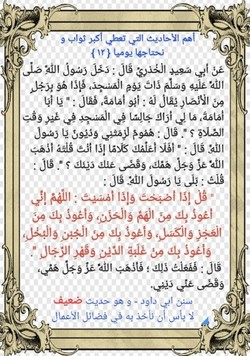 أهم الأحاديث التي تعطي أكبر ثواب و
نحتاجها يوميا {١٢}
عَنْ أَبِي سَعِيدٍ الْخُدْرِيِّ قَالَ : دَخَلَ رَسُولُ اللَّهِ صَلَّى
اللَّهُ عَلَيْهِ وَسَلَّمَ ذَاتَ يَوْمٍ الْمَسْجِدَ، فَإِذَا هُوَ بِرَجُلٍ
مِنَ الْأَنْصَارِ يُقَالُ لَهُ : أَبُو أُمَامَةَ، فَقَالَ : " يَا أَبَا
أُمَامَةَ، مَا لِي أَرَاكَ جَالِسًا فِي الْمَسْجِدِ فِي غَيْرِ وَقْتِ
الصَّلَاةِ ؟ ". قَالَ : هُمُومٌ لَزِمَتْنِي وَدُيُونٌ يَا رَسُولَ
اللَّهِ. قَالَ : " أَفَلَا أُعَلِّمُكَ كَلَامًا إِذَا أَنْتَ قُلْتَهُ أَذْهَبَ
اللَّهُ عَزَّ وَجَلَّ هَمَّكَ، وَقَضَى عَنْكَ دَيْنَكَ ؟ ". قَالَ :
قُلْتُ : بَلَى يَا رَسُولَ اللَّهِ. قَالَ :
" قُلْ إِذَا أَصْبَحْتَ وَإِذَا أَمْسَيْتَ : اللَّهُمَّ إِنِّي
أَعُوذُ بِكَ مِنَ الْهَمِّ وَالْحَزَنِ، وَأَعُوذُ بِكَ مِنَ
الْعَجْزِ وَالْكَسَلِ، وَأَعُوذُ بِكَ مِنَ الْجُبْنِ وَالْبُخْلِ،
وَأَعُوذُ بِكَ مِنْ غَلَبَةِ الدَّيْنِ وَقَهْرِ الرِّجَالِ ".
قَالَ : فَفَعَلْتُ ذَلِكَ ؛ فَأَذْهَبَ اللَّهُ عَزَّ وَجَلَّ هَمِّي،
وَقَضَى عَنِّي دَيْنِي.
سنن أبي داود - و هو حديث ضعيف
لا بأس أن تأخذ به في فضائل الأعمال